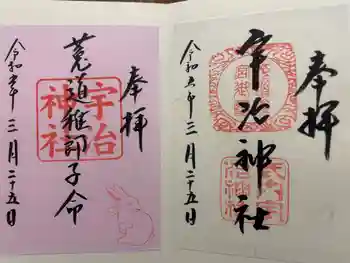 奉拝
宇治神社
令和六年三月二十五日
奉拝
菟道稚郎子命
宇治神社
令和六年三月二十五日